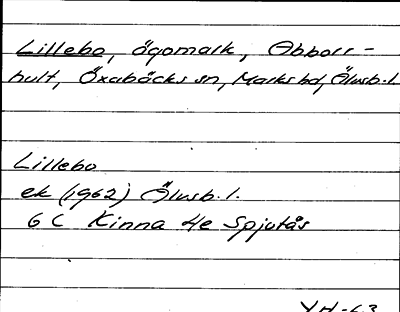 Lillebo, ägomark, Abborr-
hult, Öxabäcks sn, Marks hd, Älvsb. l.
Lillebo
ek (1962) Älvsb. l.
6 C Kinna 4e Spjutås
YH-63